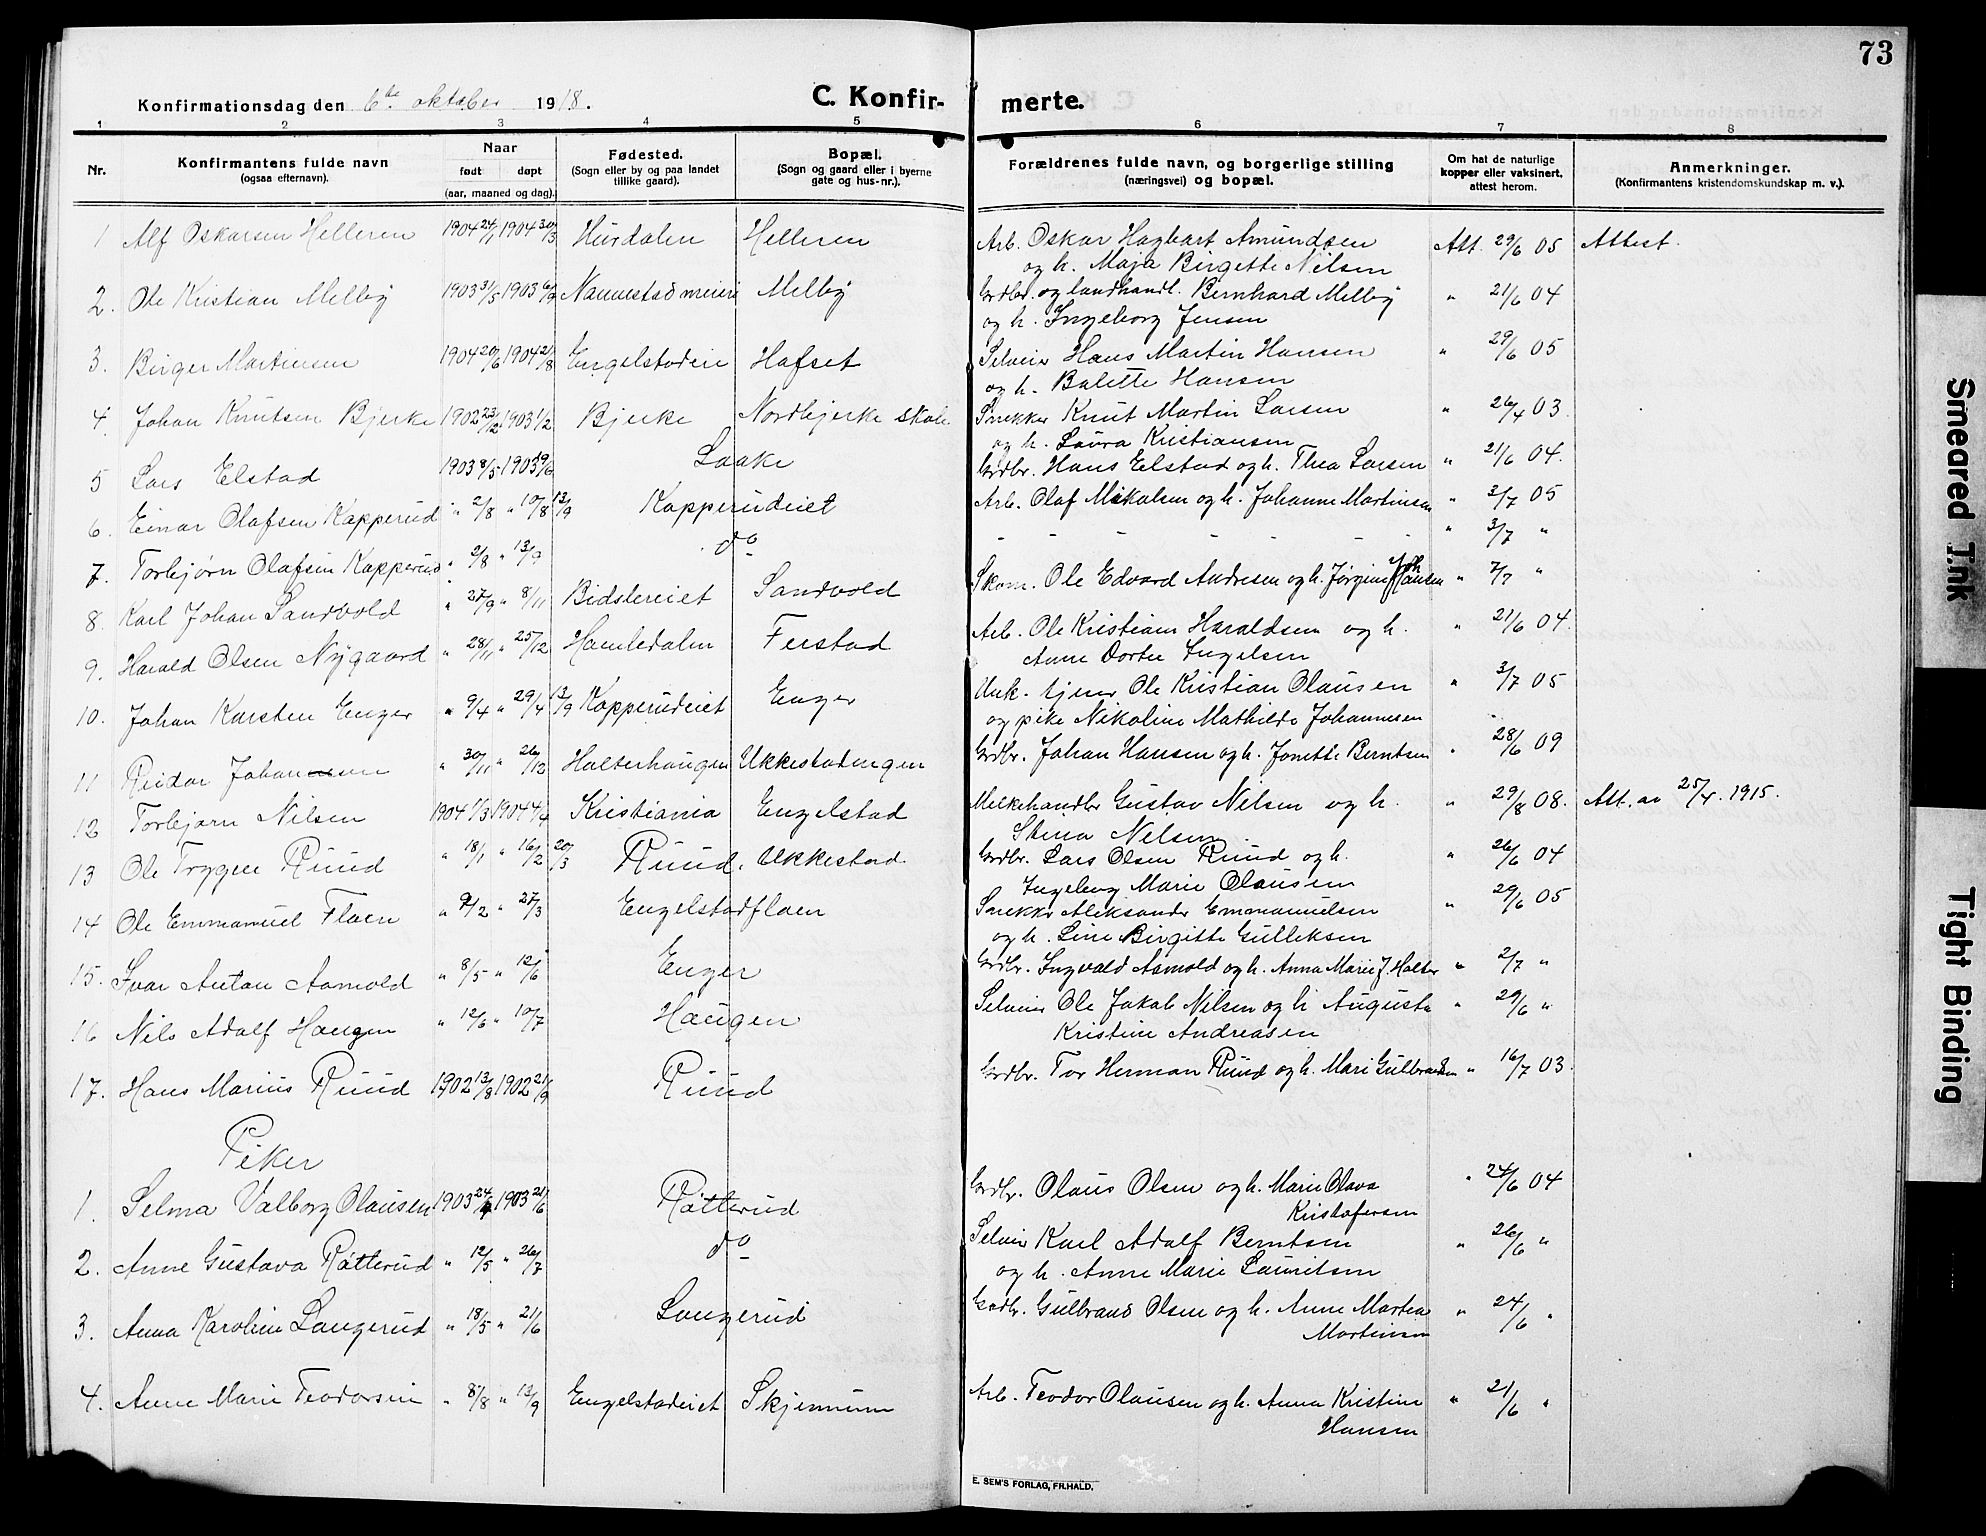 73
Konfirmationsdag den 6te oktober 1918.
C. Konfirmerte.
1 2 3 4 5 6 7 8
Nr. Konfirmantens fulde navn (ogsaa efternavn). Naar født døpt (aar, maaned og dag). Fødested. (Sogn eller by og paa landet tillike gaard). Bopæl. (Sogn og gaard eller i byerne gate og hus-nr.). Forældrenes fulde navn, og borgerlige stilling (næringsvei) og bopæl. Om hat de naturlige kopper eller vaksinert, attest herom. Anmerkninger. (Konfirmantens kristendomskundskap m. v.).
1 Alf Oskarsen Helleren 1904 24/1 1904 30/3 Hurdalen Helleren Arb. Oskar Hagbart Amundsen Att. 29/6 05 Attest.
og h. Maja Birgette Nilsen
2. Ole Kristian Melby 1903 31/5 1903 6/9 Nannestad meieri Melby Grdbr. og landhandl. Bernhard Melby " 21/6 04
og h. Ingeborg Jensen
3. Birger Martinsen 1904 20/6 1904 21/8 Engelstadeie Hafset Selveier Hans Martin Hansen " 29/6 05
og h. Balette Hansen
4. Johan Knutsen Bjerke 1902 23/12 1903 1/2 Bjerke Nordbjerke skole Snekker Knut Martin Larsen " 26/4 03.
og h. Laura Kristiansen
5 Lars Elstad 1903 8/5 1903 Laake Grdbr. Hans Elstad og h. Thea Larsen " 21/6 04.
6. Einar Olafsen Kapperud " 2/8 " 10/8 13/9 Kapperudeiet Arb. Olaf Mikalsen og h. Johanne Martinsen " 3/7 05
7. Torbjørn Olafsen Kapperud " 2/8 " 13/9 do - - - - - - " 3/7 "
8. Karl Johan Sandvold " 27/9 " 8/11 Bidstereiet Sandvold Skom. Ole Edvard Andresen og h. Jørgine Johansen " 7/7 "
9. Harald Olsen Nygaard " 28/11 " 25/12 Hamledalen Feistad Arb. Ole Kristian Haraldsen og h. " 21/6 04.
Anne Dorte Ingelsen
10. Johan Karsten Enger " 9/4 " 29/4 13/9 Kapperudeiet Enger Unk. tjener Ole Kristian Olausen " 3/7 05
og pike Nikoline Mathilde Johannesen
11 Reidar Johansen " 30/11 " 26/12 Holterhaugen Ukkestadengen Grdbr. Johan Hansen og h. Jonette Berntsen " 28/6 09
12 Torbjørn Nilsen 1904 1/3 1904 4/4 Kristiania Engelstad Melkehandler Gustav Nilsen og h. " 29/8 08. Att. av 25/4. 1915.
Stina Nilsen
13 Ole Trygve Ruud " 18/1 " 16/2 20/3 Ruud, Ukkestad. Grdbr. Lars Olsen Ruud og h. " 26/6 04
Ingeborg Marie Olausen
14 Ole Emmanuel Flaen " 9/2 " 27/3 Engelstadflaen Snekker Aleksander Emmanuelsen " 29/6 05
og h. Line Birgitte Gulleksen
15. Ivar Anton Asmold " 8/5 " 12/6 Enger Grdbr. Ingvald Asmold og h. Anna Marie J. Holter " 2/7 "
16 Nils Adolf Haugen " 12/6 " 10/7 Haugen Selveier Ole Jakob Nilsen og h Augusta " 29/6 "
Kristine Andreasen
17. Hans Marius Ruud 1902 13/8 1902 21/9 Ruud Grdbr. Tor Herman Ruud og h. Mari Gulbrandsen " 16/7 03.
Piker
1. Selma Valborg Olausen 1903 24/4 1903 21/6 Røtterud Grdbr. Olaus Olsen og h. Marie Olava " 24/6 04
Kristofersen
2. Anne Gustava Røtterud " 12/5 " 26/7 do Selveier Karl Adolf Berntsen " 26/6 "
og h. Anne Marie Lauritsen
3. Anna Karoline Langerud " 18/5 " 21/6 Langerud Grdbr. Gulbrand Olsen og h. Anne Martea " 24/6 "
Martinsen
4. Anne Marie Teodorsen " 8/8 " 13/9 Engelstadeiet Skjennum Arb. Teodor Olausen og h. Anna Kristine " 21/6 "
Hansen
E. SEM'S FORLAG, FR.HALD.
Smeared Ink
Tight Binding